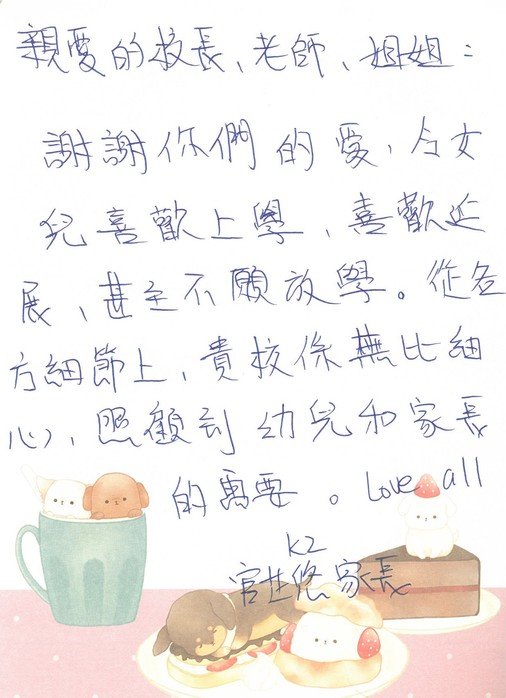 親愛的校長、老師、姐姐：
謝謝你們的愛，令女
兒喜歡上學，喜歡延
展，甚至不願放學。從各
方細節上，貴校係無比細
心，照顧到幼兒和家長
的需要。Love all
K2
家長